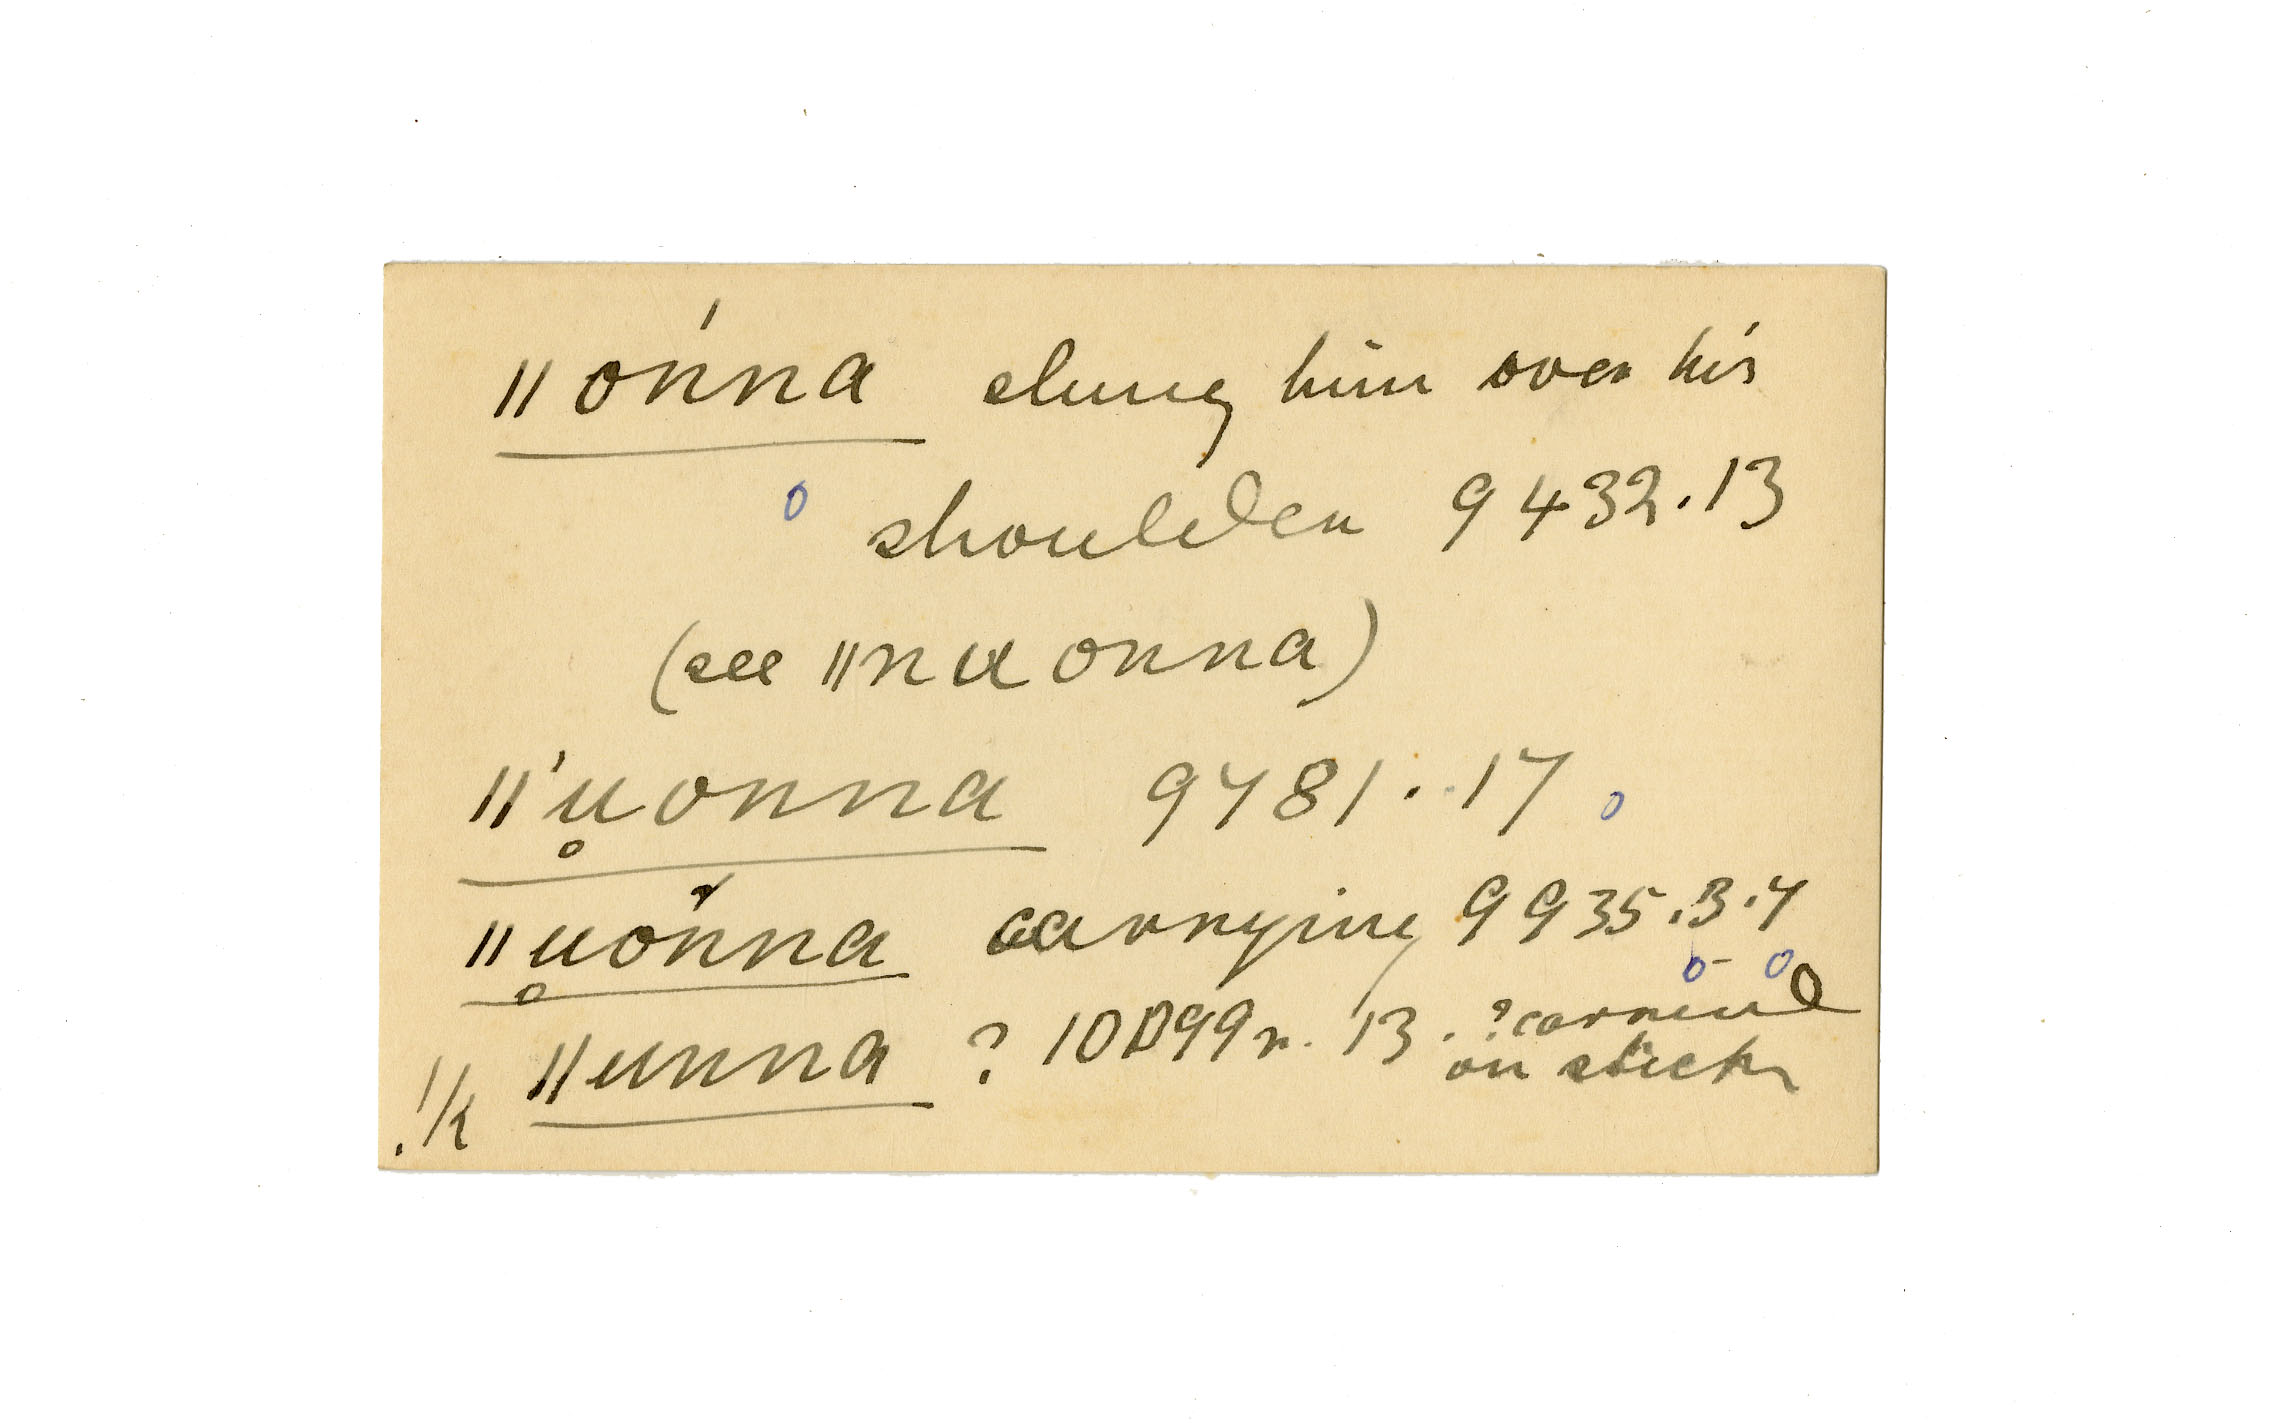 ǁónna slung him over his
shoulder 9432.13
(see ǁnuonna)
ǁ'u̥onna 9481..17
ǁu̥ónna carrying 9935.3.4
ǁunna ? 10099r. 13. ? carried
on stick